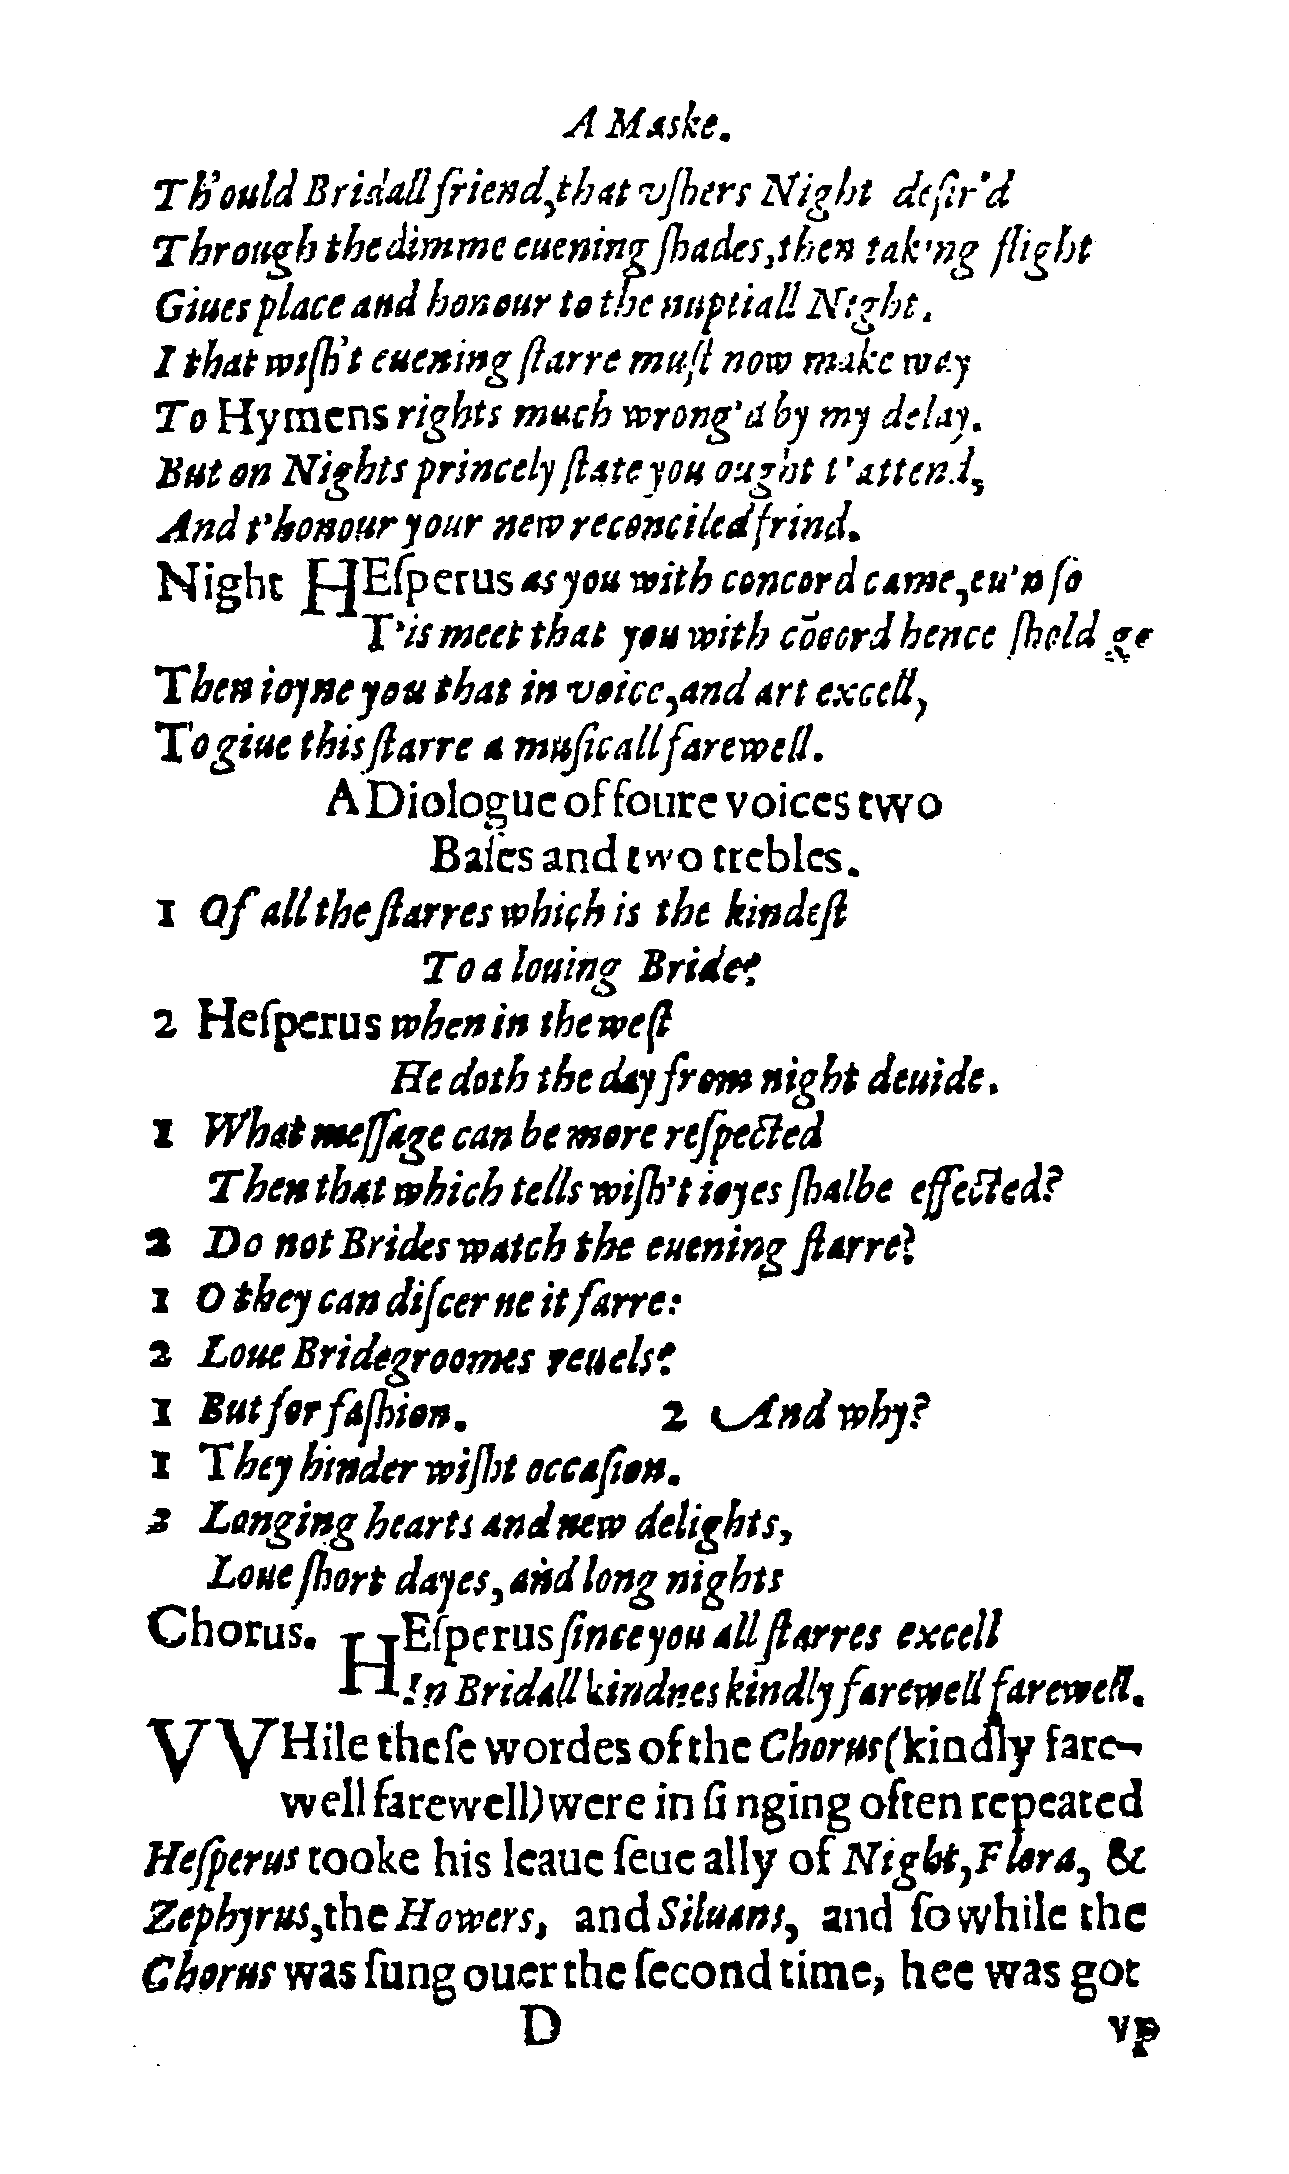 A Maske.
Th'ould Bridall friend, that vſhers Night deſir'd
Through the dimme euening ſhades, then tak'ng flight
Giues place and honour to the nuptiall Night.
I that wiſh't euening ſtarre muſt now make way
To Hymens rights much wrong'd by my delay.
But on Nights princely ſtate you ought t'attend,
And t'honour your new reconciled frind.
Night HEſperus as you with concord came, eu'n ſo
T'is meet that you with cōcord hence ſhold go
Then ioyne you that in voice, and art excell,
To giue this ſtarre a muſicall farewell.
A Diologue of foure voices two
Baſes and two trebles.
1 Of all the ſtarres which is the kindeſt
To a louing Bride?
2 Heſperus when in the weſt
He doth the day from night deuide.
1 What meſſage can be more reſpected
Then that which tells wiſh't ioyes ſhalbe effected?
2 Do not Brides watch the euening ſtarre?
1 O they can diſcerne it farre:
2 Loue Bridegroomes reuels?
1 But for faſhion. 2 And why?
1 They hinder wiſht occaſion.
2 Longing hearts and new delights,
Loue ſhort dayes, and long nights
Chorus. HEſperus ſince you all ſtarres excell
In Bridall kindnes kindly farewell farewell.
VVHile theſe wordes of the Chorus (kindly fare-
well farewell) were in ſinging often repeated
Heſperus tooke his leaue ſeue ally of Night, Flora, &
Zephyrus, the Howers, and Siluans, and ſo while the
Chorus was ſung ouer the ſecond time, hee was got
D vp